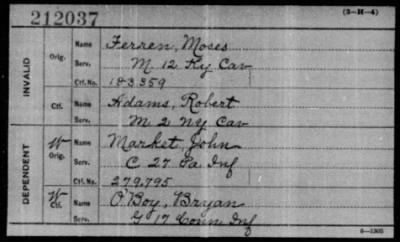 212037
(3-H-4)
INVALID
Orig.
Name Ferren, Moses
Serv. M. 12 Ky Cav
Ctf. No. 183.359
Ctf.
Name Adams, Robert
Serv. M 2 NY Cav
DEPENDENT
W Orig.
Name Market, John
Serv. C 27 Pa Inf
Ctf. No. 279.795
W Ctf.
Name O'Boy, Bryan
Serv. G 17 Conn Inf
6-1305